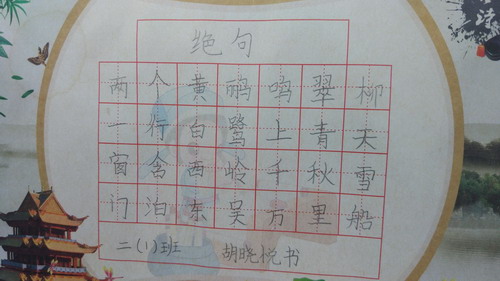 绝句
两个黄鹂鸣翠柳
一行白鹭上青天
窗含西岭千秋雪
门泊东吴万里船
二(1)班 胡晓悦书